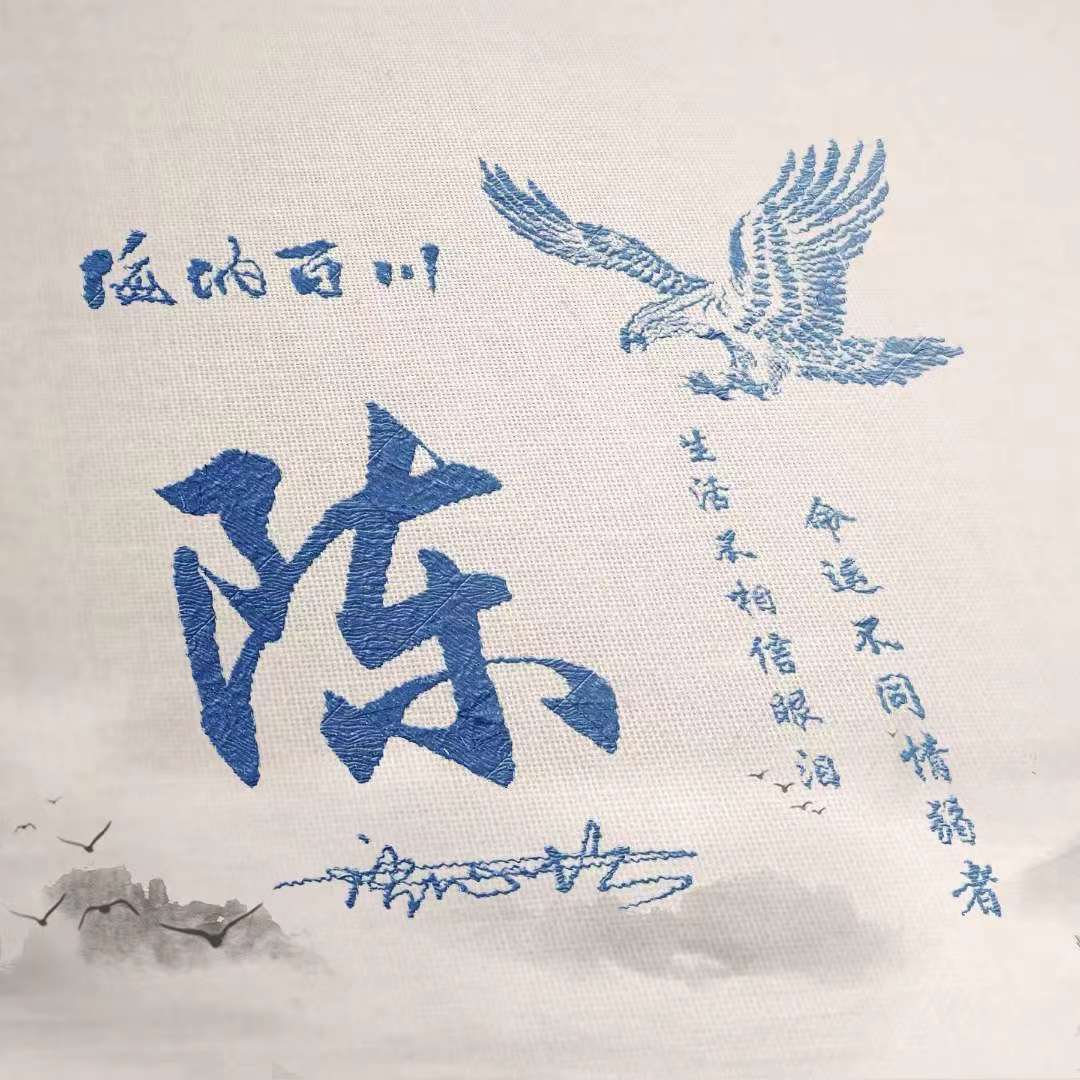 海纳百川
陈
生活不相信眼泪
命运不同情弱者